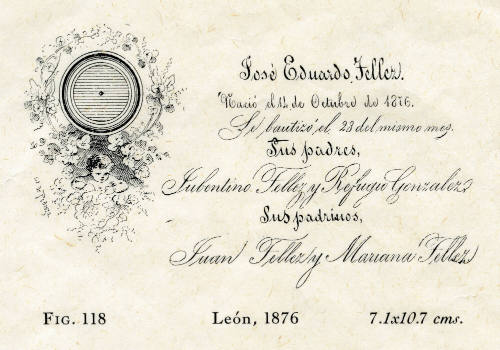 José Eduardo Tellez.
Nació el 12, de Octubre de 1876.
Se bautizó el 23 del mismo mes.
Sus padres,
Jubentino Tellez y Refugio Gonzalez,
Sus padrinos,
Juan Tellez y Mariana Tellez
FIG. 118
León, 1876
7.1x10.7 cms.